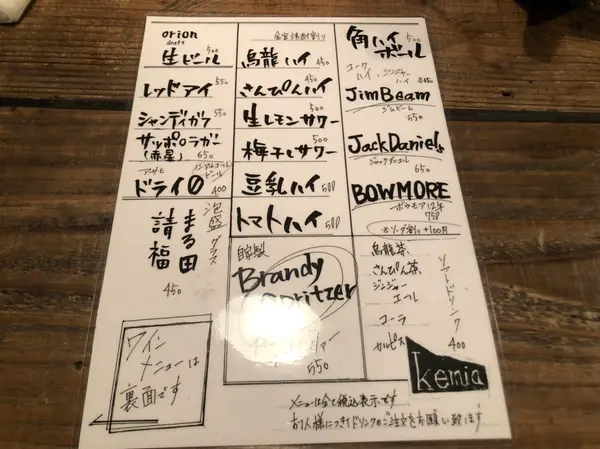 orion
draft
生ビール 500
レッドアイ 550
シャンディガフ 550
サッポロラガー
(赤星) 650
アサヒ
ノンアルコール
ビール
ドライ0 400
泡盛
グラス
まる田
請福
450
ワイン
メニューは
裏面です
烏龍ハイ 450
さんぴんハイ 450
生レモンサワー 500
梅干しサワー 500
豆乳ハイ 500
トマトハイ 500
自家製
Brandy
Spritzer
550
角ハイ
ボール 500
コーク
ハイ・ジンジャー
ハイ
JimBeam
ジムビーム
650
JackDaniel's
ジャックダニエル
650
BOWMORE
ボウモア12年
750
※ソーダ割り+100円
ソフトドリンク
400
烏龍茶、
さんぴん茶、
ジンジャー
エール
コーラ
カルピス
kemia
メニューは全て税込表示です
お1人様につき1ドリンクのご注文をお願い致します